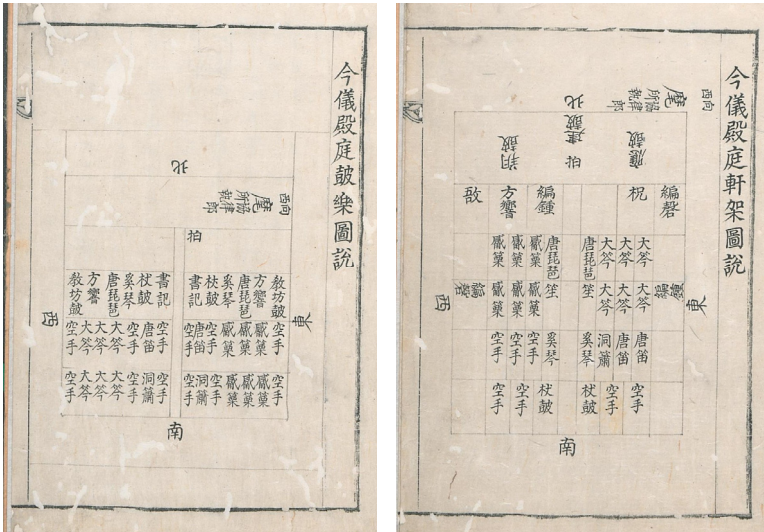 今儀殿庭軒架圖說
西向
麾
協律郎所執
北
應鼓 建鼓 朔鼓
拍
編磬 柷 編鍾 方響 敔
大笒 大笒 大笒 唐琵琶 唐琵琶 觱篥 觱篥 觱篥
東
大笒 大笒 大笒 笙 笙 觱篥 觱篥 觱篥
西
唐笛 唐笛 洞簫 奚琴 奚琴 空手 空手 空手
空手 空手 杖鼓 杖鼓 空手 空手
南
今儀殿庭鼓樂圖說
北
西向
麾
協律郎所執
拍
敎坊鼓 方響 唐琵琶 奚琴 杖鼓 書記 書記 杖鼓 奚琴 唐琵琶 方響 敎坊鼓
東
西
空手 觱篥 觱篥 觱篥 空手 唐笛 空手 空手 唐笛 空手 大笒 大笒 大笒 空手
空手 觱篥 觱篥 觱篥 空手 洞簫 空手 空手 洞簫 空手 大笒 大笒 大笒 空手
南